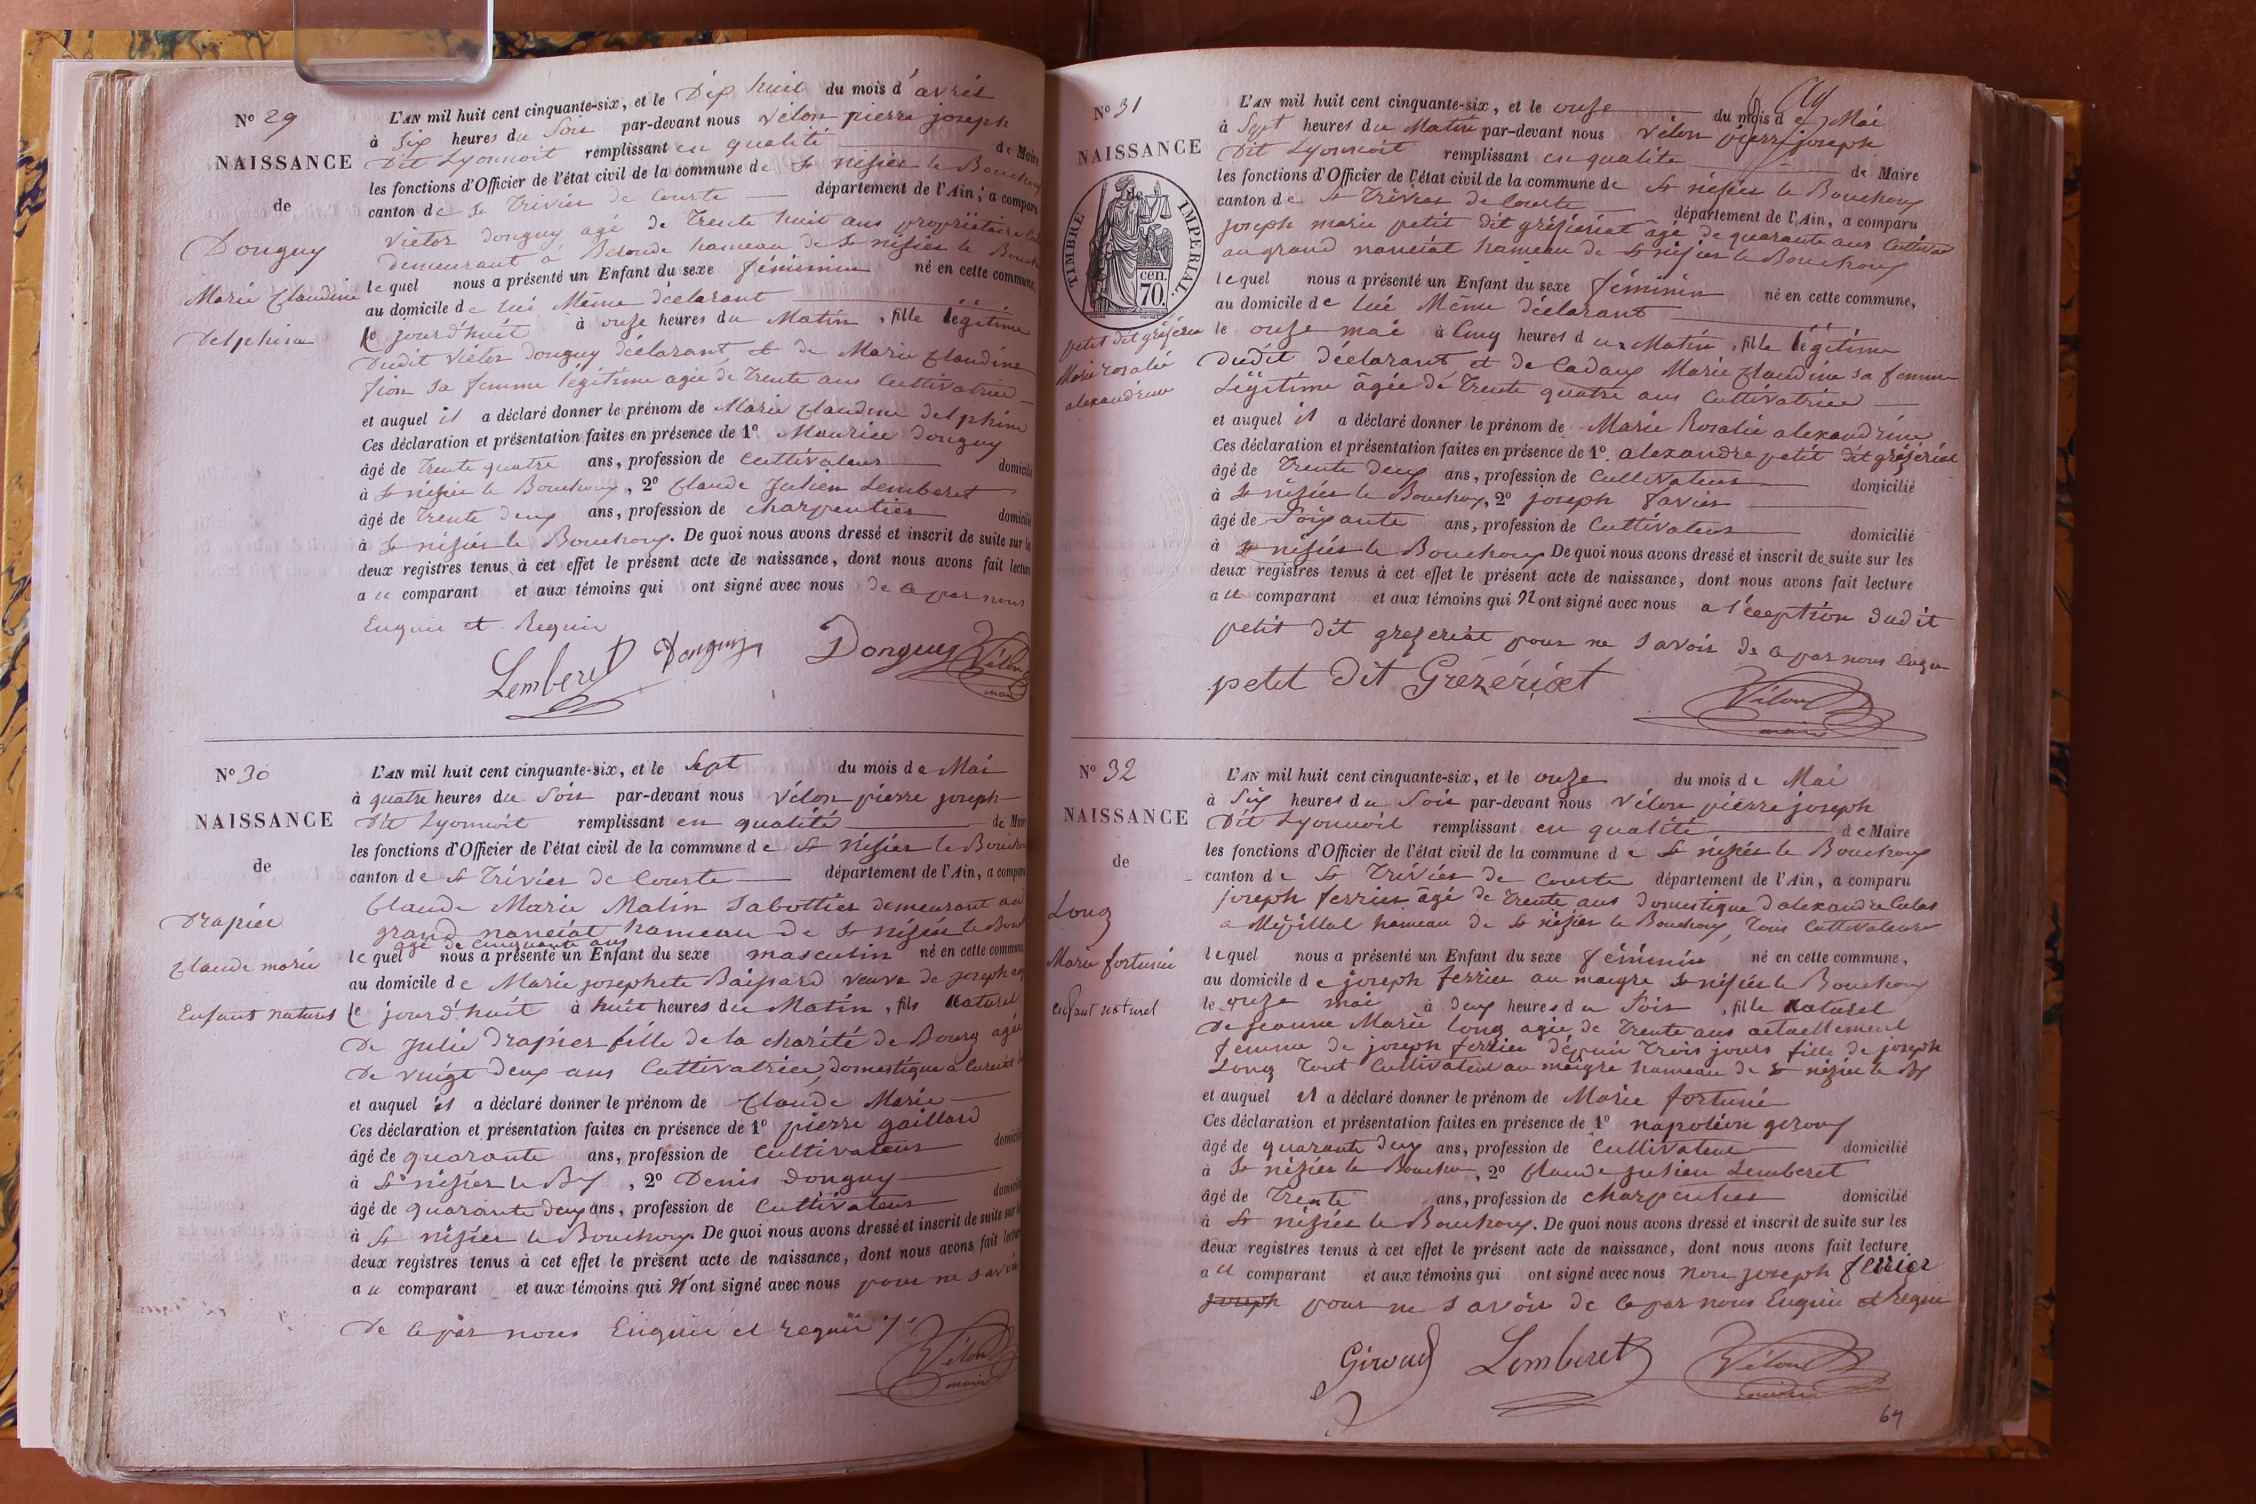 N° 29
NAISSANCE
de
Donguy
Marie Claudine
Delphine
L'AN mil huit cent cinquante-six, et le Dix huit du mois d'avril
à Six heures du Soir par-devant nous Vélon pierre joseph
Dit Lyonnoit remplissant en qualité de Maire
les fonctions d'Officier de l'état civil de la commune de St nizier le Bouchoux
canton de St Trivier de Courte département de l'Ain, a comparu
Victor donguy agé de Trente huit ans propriétaire
demeurant à hameau de St nizier le Bouch
lequel nous a présenté un Enfant du sexe féminin né en cette commune,
au domicile de lui Même déclarant
le jourd'huit à onze heures du Matin, fille légitime
Dudit Victor donguy déclarant et de Marie Claudine
fion sa femme légitime agée de Trente ans Cultivatrice
et auquel il a déclaré donner le prénom de Marie Claudine delphine
Ces déclaration et présentation faites en présence de 1° Maurice donguy
âgé de Trente quatre ans, profession de Cultivateur domicilié
à St nizier le Bouchoux, 2° Claude Julien Lemberet
âgé de Trente deux ans, profession de charpentier domicilié
à St nizier le Bouchoux. De quoi nous avons dressé et inscrit de suite sur les
deux registres tenus à cet effet le présent acte de naissance, dont nous avons fait lecture
au comparant et aux témoins qui ont signé avec nous de ce par nous
Enquis et Requis
Lemberet Donguy Donguy Vélon
maire
N° 30
NAISSANCE
de
Drapier
Claude marie
Enfant naturel
L'AN mil huit cent cinquante-six, et le Sept du mois de Mai
à quatre heures du Soir par-devant nous Vélon pierre joseph
Dit Lyonnoit remplissant en qualité de Maire
les fonctions d'Officier de l'état civil de la commune de St Nizier le Bouchoux
canton de St Trivier de Courte département de l'Ain, a comparu
Claude Marie Matin Sabottier demeurant au
grand nanciat hameau de St nizier le Bouch
agé de cinquante ans
lequel nous a présenté un Enfant du sexe masculin né en cette commune,
au domicile de Marie josephete Baissard veuve de joseph
le jourd'huit à huit heures du Matin, fils Naturel
de Julie Drapier fille de la charité de Bourg agée
de vingt deux ans Cultivatrice, domestique a
et auquel il a déclaré donner le prénom de Claude Marie
Ces déclaration et présentation faites en présence de 1° pierre gaillard
âgé de quarante ans, profession de Cultivateur domicilié
à St nizier le Bx, 2° Denis Donguy
âgé de quarante deux ans, profession de Cultivateur domicilié
à St nizier le Bouchoux. De quoi nous avons dressé et inscrit de suite sur les
deux registres tenus à cet effet le présent acte de naissance, dont nous avons fait lecture
au comparant et aux témoins qui N'ont signé avec nous pour ne savoir
De ce par nous Enquis et requis
Vélon
maire
N° 31
NAISSANCE
TIMBRE IMPERIAL
70 cen.
petit dit gréfériat
Marie rosalie
alexandrine
L'AN mil huit cent cinquante-six, et le onze du mois de Mai
à Sept heures du Matin par-devant nous Vélon pierre joseph
Dit Lyonnoit remplissant en qualité de Maire
les fonctions d'Officier de l'état civil de la commune de St nizier le Bouchoux
canton de St Trivier de Courte département de l'Ain, a comparu
joseph marie petit dit gréfériat agé de quarante ans Cultivat
au grand nanciat hameau de St nizier le Bouchoux
lequel nous a présenté un Enfant du sexe féminin né en cette commune,
au domicile de lui Même déclarant
le onze mai à Cinq heures du Matin, fille légitime
Dudit déclarant et de Cadoux Marie Claudine sa femme
Légitime âgée de Trente quatre ans Cultivatrice
et auquel il a déclaré donner le prénom de Marie Rosalie alexandrine
Ces déclaration et présentation faites en présence de 1° alexandre petit dit gréfériat
âgé de Trente deux ans, profession de Cultivateur domicilié
à St nizier le Bouchoux, 2° joseph favier
âgé de Soixante ans, profession de Cultivateur domicilié
à St nizier le Bouchoux De quoi nous avons dressé et inscrit de suite sur les
deux registres tenus à cet effet le présent acte de naissance, dont nous avons fait lecture
au comparant et aux témoins qui N'ont signé avec nous a l'éception dudit
petit dit grefériat pour ne Savoir de ce par nous Enqu
petit dit Grézériat Vélon
maire
N° 32
NAISSANCE
de
Long
Marie fortuné
enfant naturel
L'AN mil huit cent cinquante-six, et le onze du mois de Mai
à Six heures du Soir par-devant nous Vélon pierre joseph
Dit Lyonnoit remplissant en qualité de Maire
les fonctions d'Officier de l'état civil de la commune de St nizier le Bouchoux
canton de St Trivier de Courte département de l'Ain, a comparu
joseph ferrier âgé de Trente ans Domestique d'alexandre Colas
a Mézillat hameau de St nizier le Bouchoux, Tous Cultivateurs
lequel nous a présenté un Enfant du sexe féminin né en cette commune,
au domicile de joseph ferrier au maigre St nizier le Bouchoux
le onze mai à deux heures du Soir, fille Naturel
de jeanne Marie long agée de Trente ans actuellement
femme de joseph ferrier dépuis Trois jours fille de joseph
Long Tout Cultivateur au maigre hameau de St nizier le Bx
et auquel il a déclaré donner le prénom de Marie fortuné
Ces déclaration et présentation faites en présence de 1° napoléon giroux
âgé de quarante deux ans, profession de Cultivateur domicilié
à St nizier le Bouchou, 2° Claude julien Lemberet
âgé de Trente ans, profession de charpentier domicilié
à St nizier le Bouchoux. De quoi nous avons dressé et inscrit de suite sur les
deux registres tenus à cet effet le présent acte de naissance, dont nous avons fait lecture
au comparant et aux témoins qui ont signé avec nous non joseph ferrier
joseph pour ne Savoir de ce par nous Enquis et Requis
Giroud Lemberet Vélon
maire
64